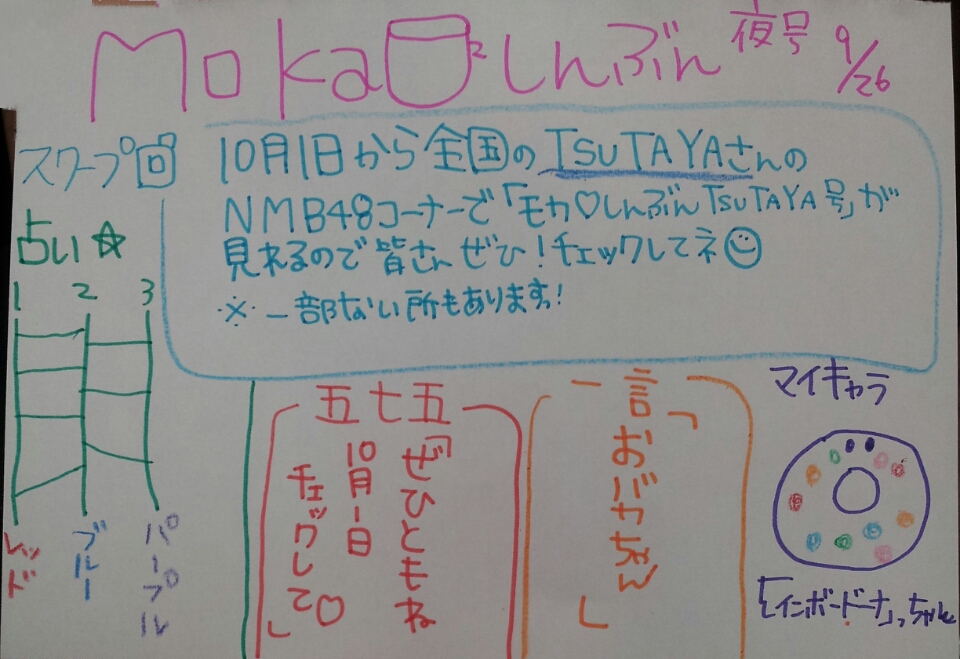 Mokaしんぶん 夜号 9/26
スクープ回
10月1日から全国のTSUTAYAさんの
NMB48コーナーで「モカ♡しんぶんTSUTAYA号」が
見れるので皆さんぜひ!チェックしてネ
※一部ない所もあります!
占い☆
1 2 3
レッド
ブルー
パープル
五七五
「ぜひともね
10月1日
チェックして♡」
一言
「おバカちゃん」
マイキャラ